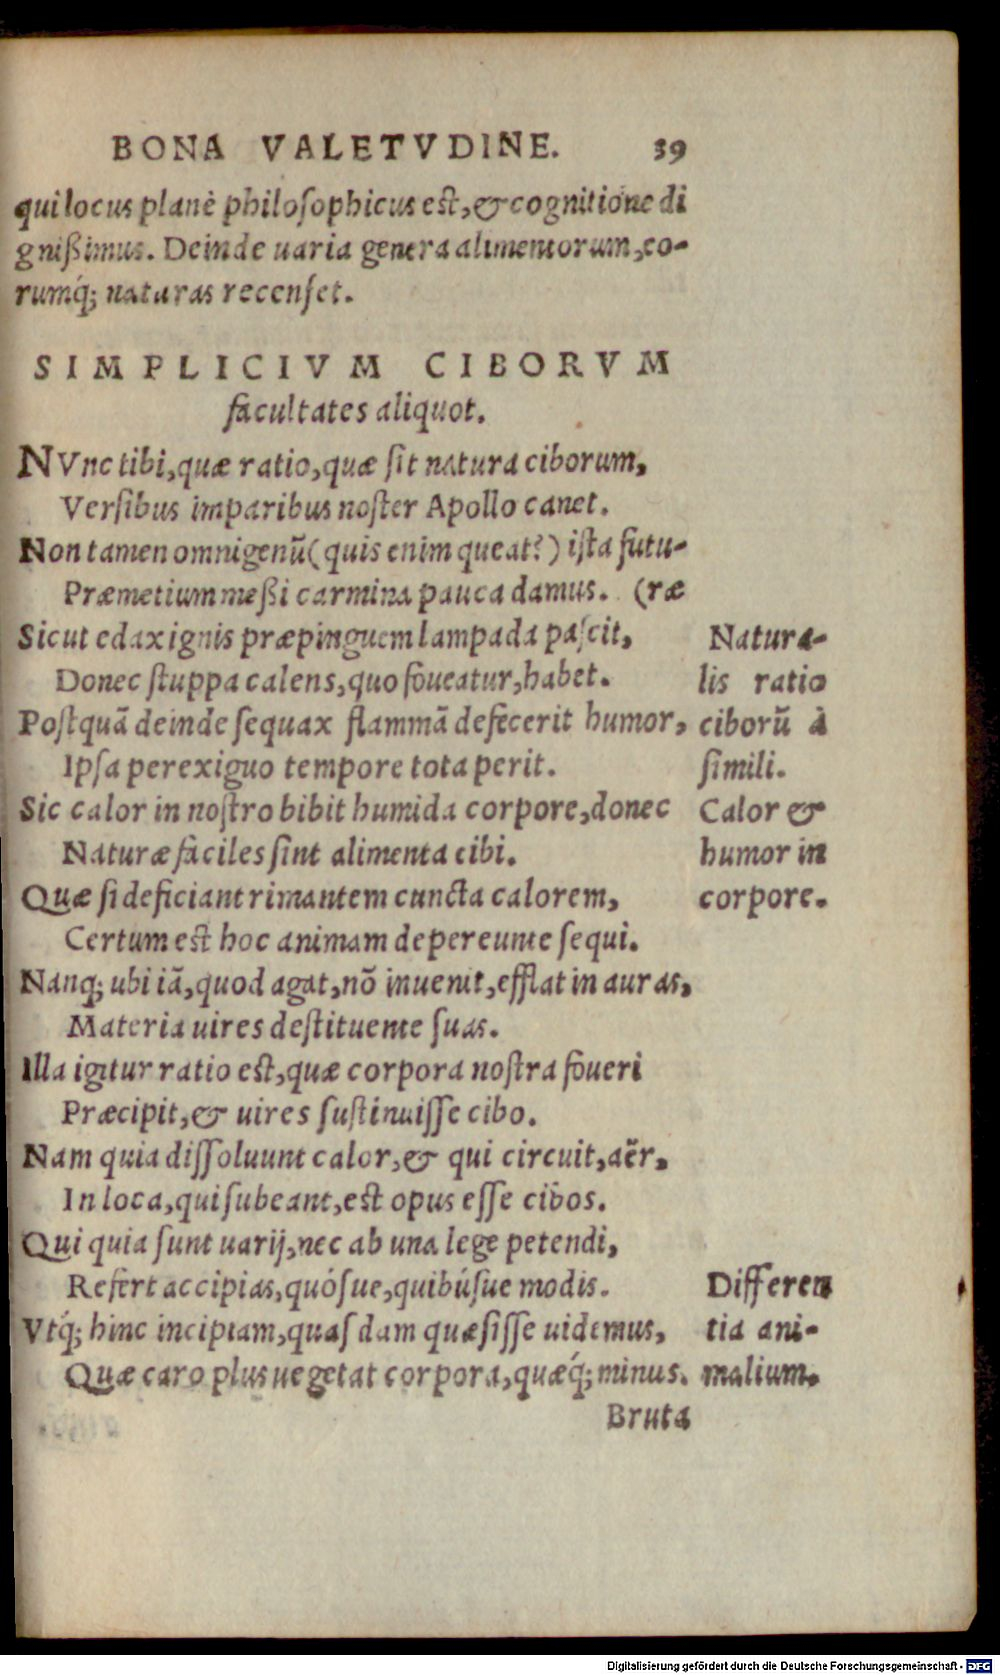 BONA VALETVDINE. 39
qui locus planè philosophicus est, & cognitione di
gnißimus. Deinde uaria genera alimentorum, eo-
rumq́; naturas recenset.
SIMPLICIVM CIBORVM
facultates aliquot.
NVnc tibi, quæ ratio, quæ sit natura ciborum,
Versibus imparibus noster Apollo canet.
Non tamen omnigenū (quis enim queat?) ista futu-
Præmetium meßi carmina pauca damus. (ræ
Sicut edax ignis præpinguem lampada pascit,
Donec stuppa calens, quo foueatur, habet.
Postquā deinde sequax flammā defecerit humor,
Ipsa perexiguo tempore tota perit.
Sic calor in nostro bibit humida corpore, donec
Naturæ faciles sint alimenta cibi.
Quæ si deficiant rimantem cuncta calorem,
Certum est hoc animam depereunte sequi.
Nanq; ubi iā, quod agat, nō inuenit, efflat in auras,
Materia uires destituente suas.
Illa igitur ratio est, quæ corpora nostra foueri
Præcipit, & uires sustinuisse cibo.
Nam quia dissoluunt calor, & qui circuit, aër,
In loca, qui subeant, est opus esse cibos.
Qui quia sunt uarij, nec ab una lege petendi,
Refert accipias, quósue, quibúsue modis.
Vtq́; hinc incipiam, quasdam quæsisse uidemus,
Quæ caro plus uegetat corpora, quæq́; minus.
Bruta
Natura-
lis ratio
ciborū à
simili.
Calor &
humor in
corpore.
Differen
tia ani-
malium.
Digitalisierung gefördert durch die Deutsche Forschungsgemeinschaft - DFG